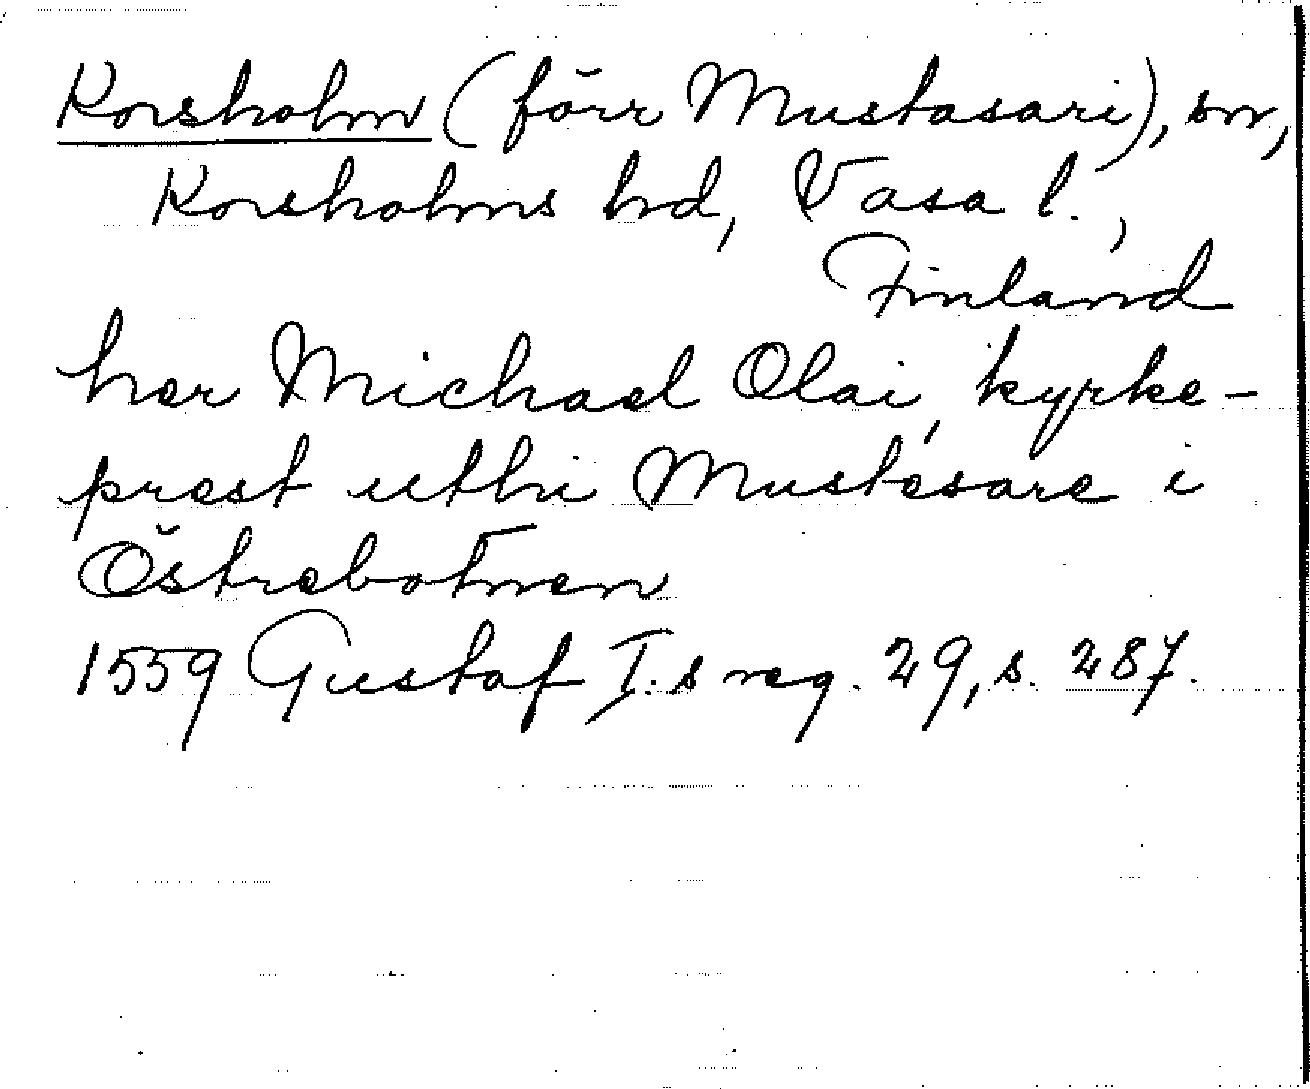 Korsholm (förr Mustasari), sn,
Korsholms hd, Vasa l.,
Finland
her Michael Olai, kyrke-
prest uthi Mustesare i
Östrebotnen
1559 Gustaf I:s reg. 29, s. 287.